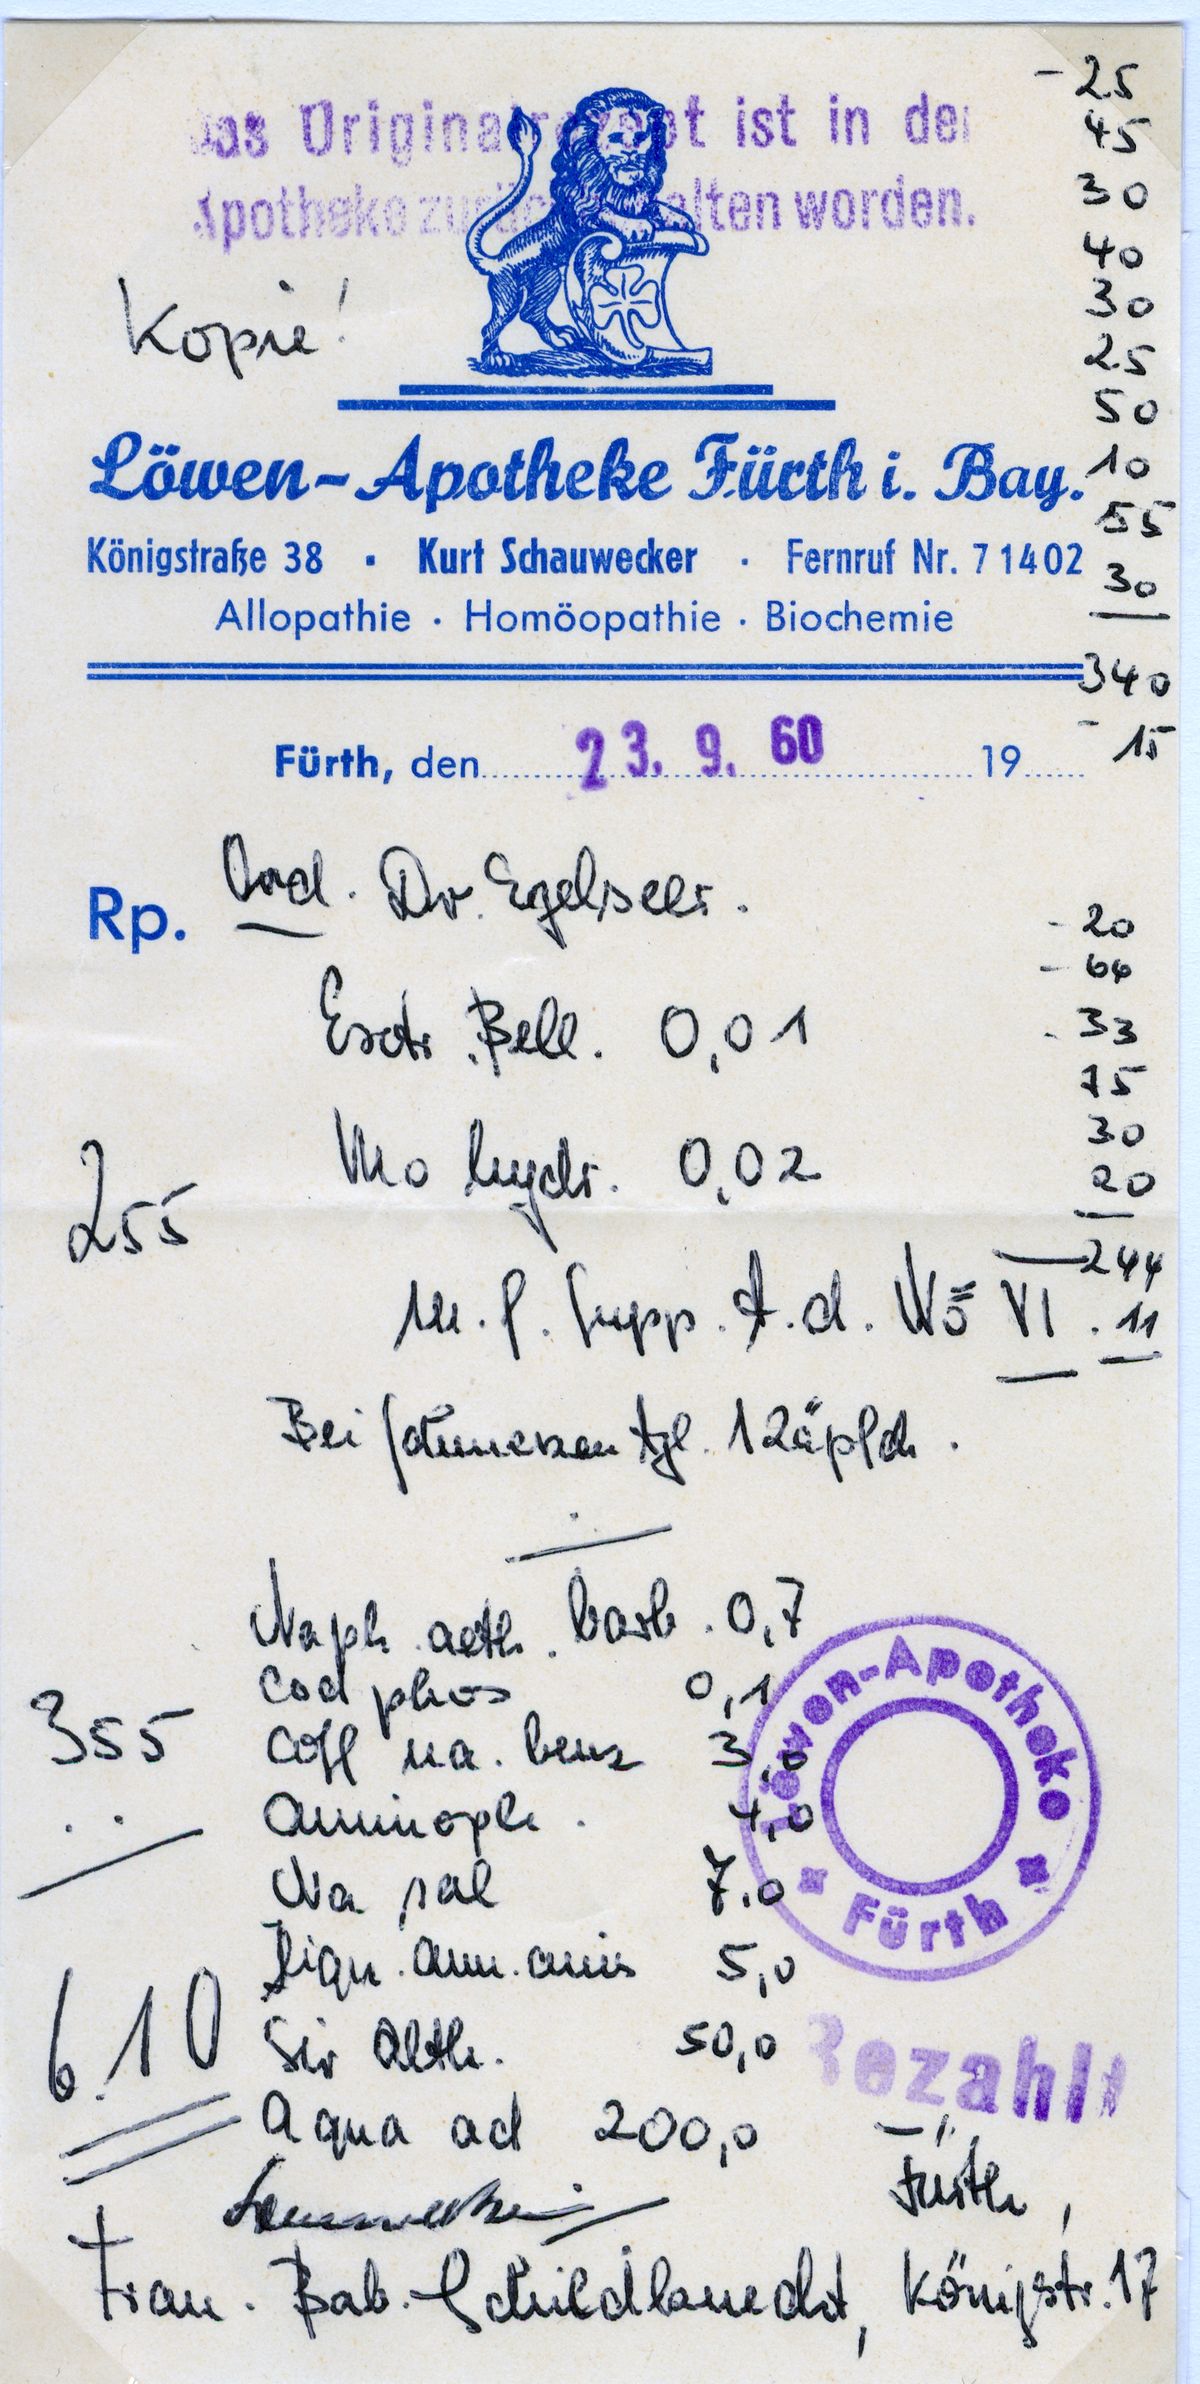 Das Originalrezept ist in der
Apotheke zurückbehalten worden.
Kopie!
Löwen-Apotheke Fürth i. Bay.
Königstraße 38 · Kurt Schauwecker · Fernruf Nr. 71402
Allopathie · Homöopathie · Biochemie
- 25
45
30
40
30
25
50
10
55
30
340
- 15
Fürth, den 23. 9. 60 19
Rp. Ord. Dr. Egelseer.
Extr. Bell. 0,01
Mo hydr. 0,02
255
M. f. Supp. t. d. No VI
- 20
- 66
- 33
75
30
20
244
11
Bei Schmerzen tgl. 1 Zäpfch.
Naph. aeth. barb. 0,7
Cod phos 0,1
Coff na. benz 3,0
355
Aminoph. 4,0
Na sal 7.0
Liqu. Amm. anis 5,0
Sir Alth. 50,0
6.10
Aqua ad 200,0
Löwen-Apotheke
Fürth
Bezahlt
Schauwecker
Fürth,
Frau. Bab. Schildknecht, Königstr. 17